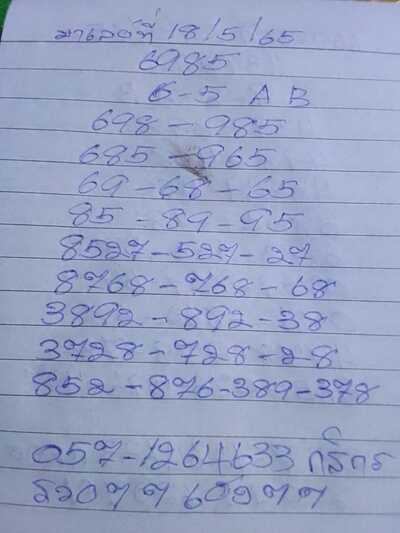 มาเลย์ที่ 18/5/65
6985
6-5 A B
698-985
685-965
69-68-65
85-89-95
8527-527-27
8768-768-68
3892-892-38
3728-728-28
852-876-389-378
057-1264633 กสิกร